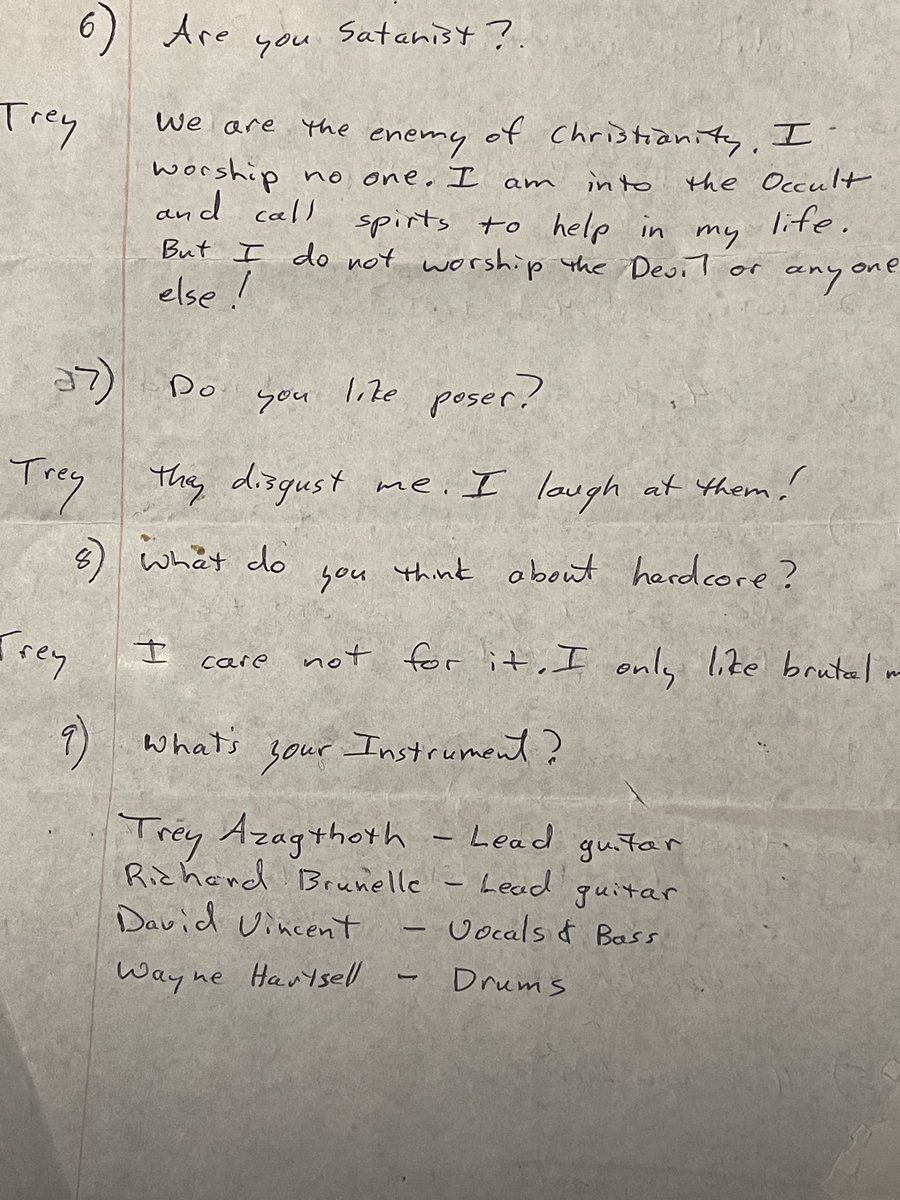 6) Are you Satanist?
Trey We are the enemy of Christianity. I
worship no one. I am into the Occult
and call spirts to help in my life.
But I do not worship the Devil or anyone
else!
7) Do you like poser?
Trey they disgust me. I laugh at them!
8) What do you think about hardcore?
Trey I care not for it. I only like brutal m
9) What's your Instrument?
Trey Azagthoth - Lead guitar
Richard Brunelle - Lead guitar
David Vincent - Vocals & Bass
Wayne Hartsell - Drums